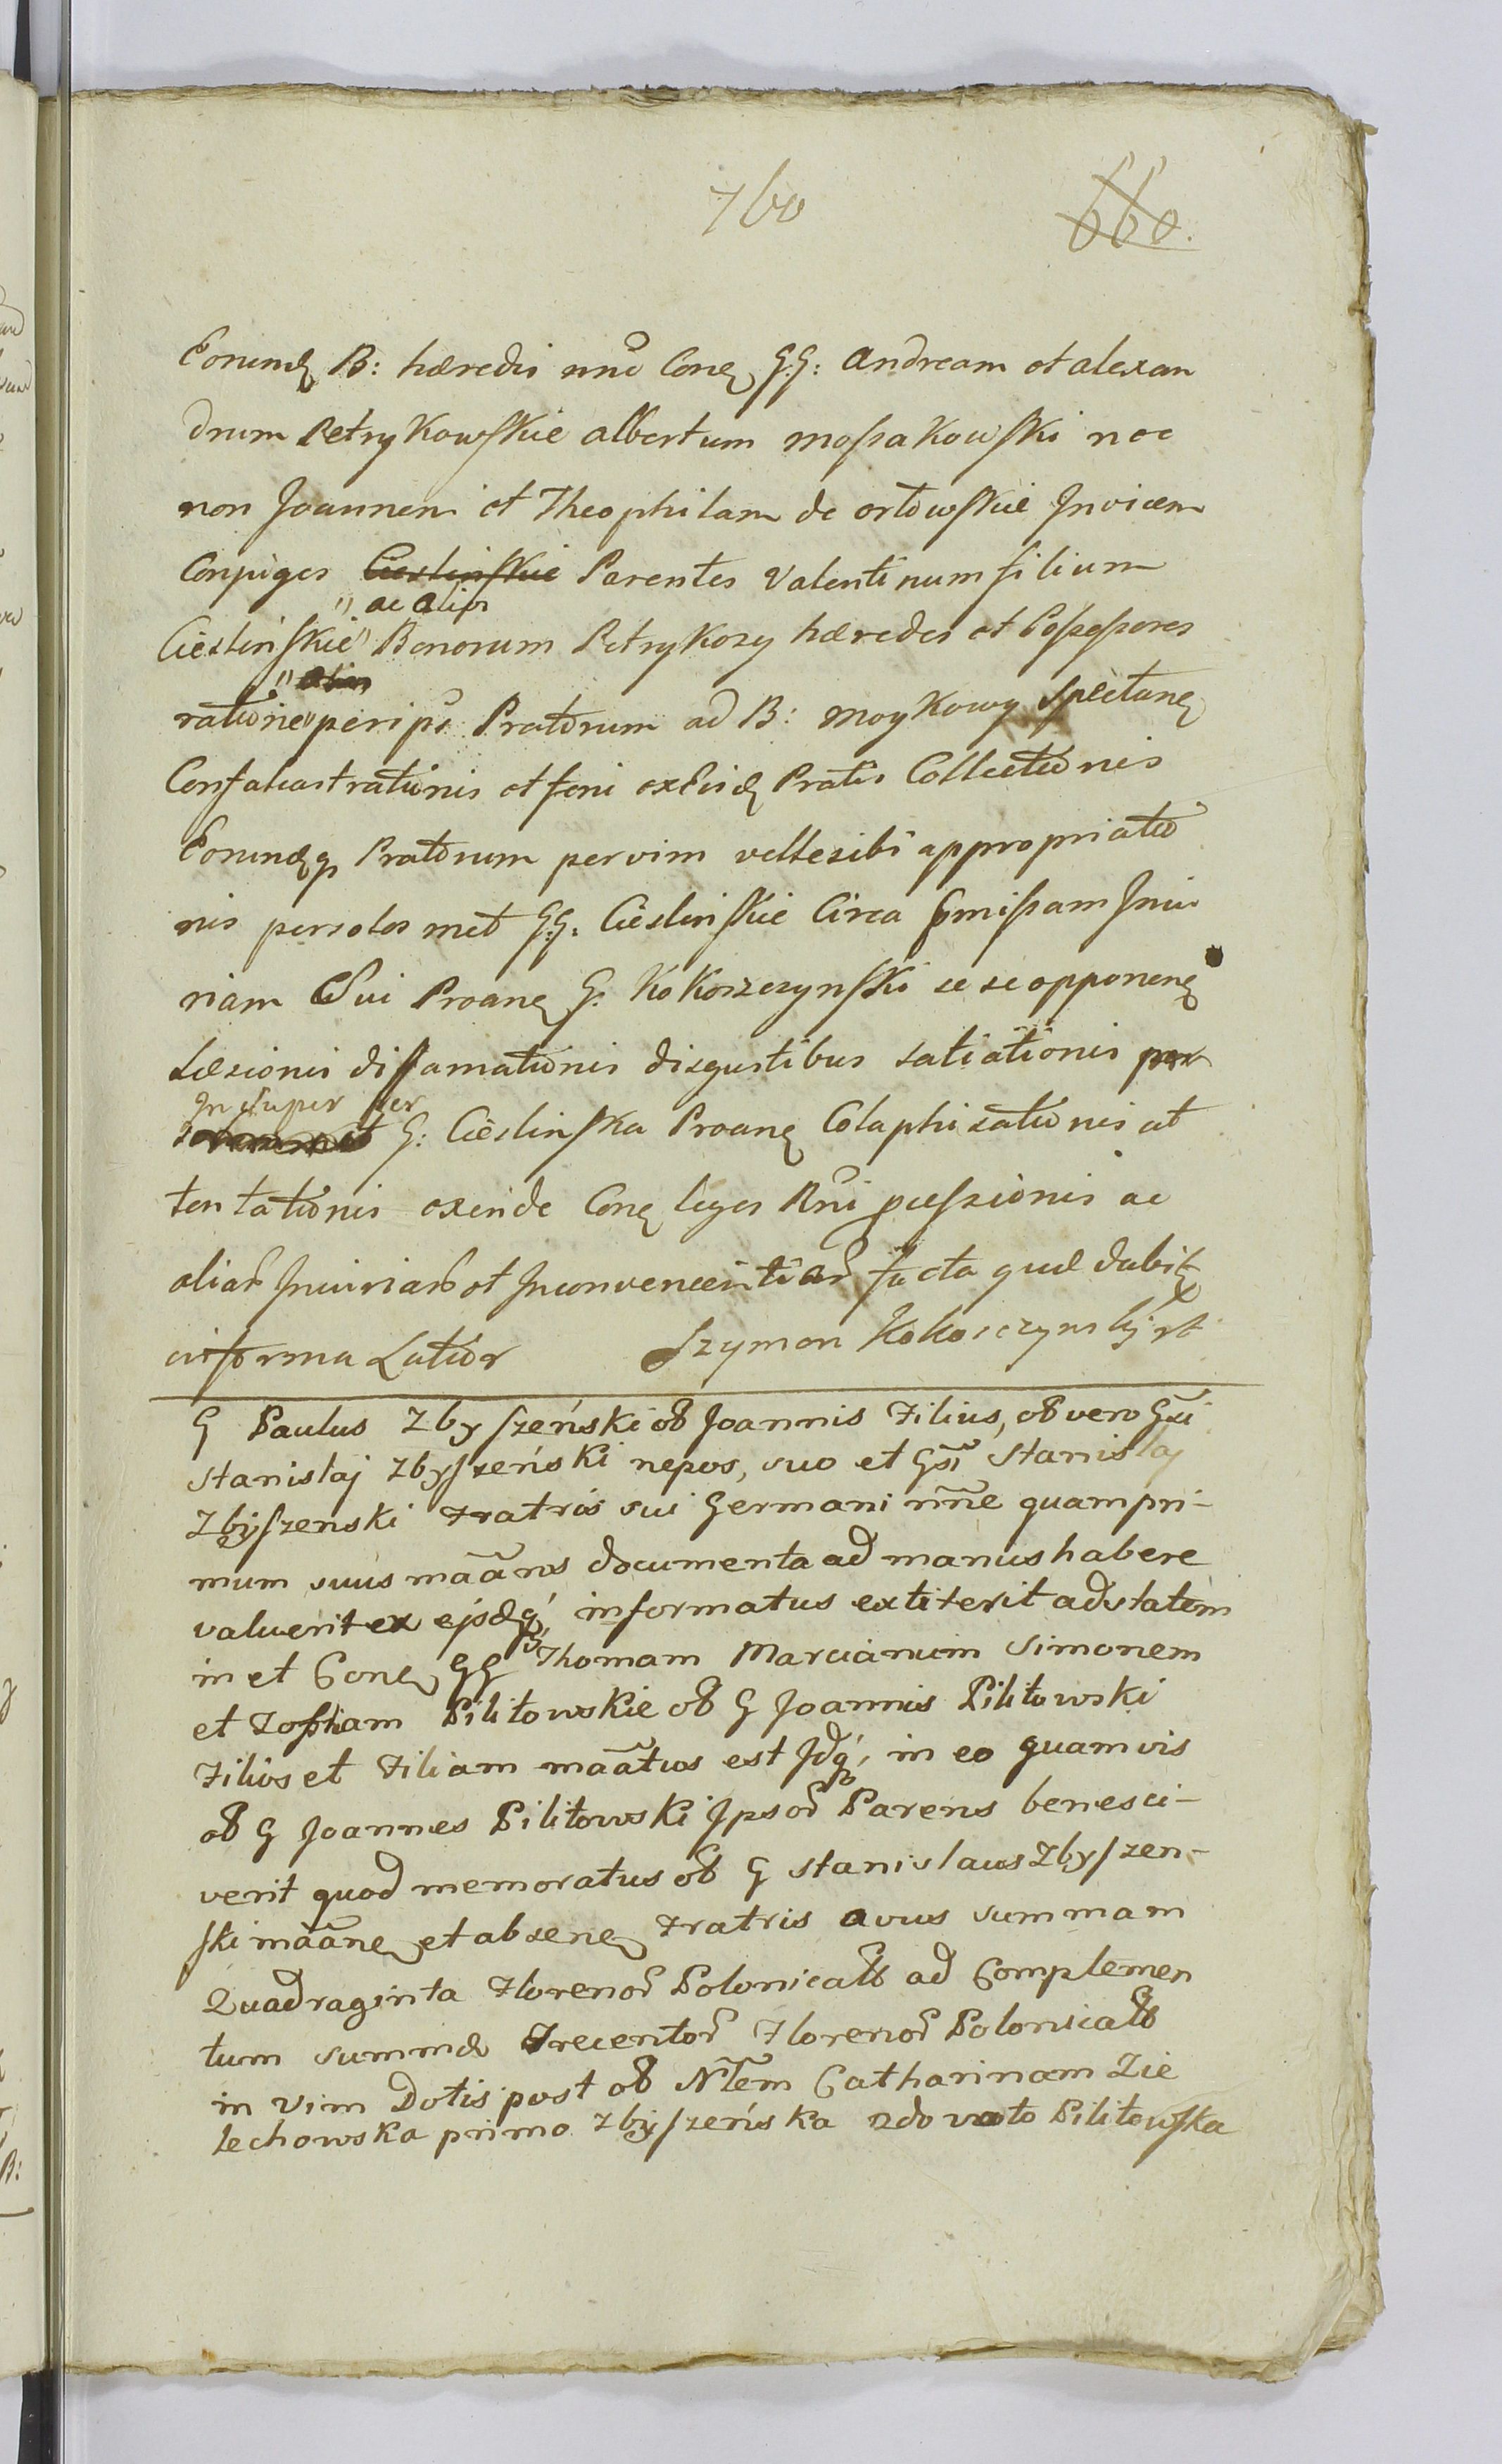 760 660.
Eorund B: hæredis nno Cone GG: Andream et alexan
drum PetryKowskie albertum mossaKowski nec
non Joannem et Theophilam de orłowskie Invicem
Conjuges Cieslinskie Parentes Valentinum filium
" ac alior
Cieslińskie" Bonorum PetryKozy hæredes et Possessores
" alias
ratione" per ipsos Pratorum ad B: moyKowy Spectan
Confalcastrationis et feni ex Eisd Pratis Collectionis
Eorumdq Pratorum per vim velle sibi appropriatio
nis per solos met GG: Cieslinskie Circa pmissam Iniu
riam Sui Proane G: KoKoszczynski se se opponen
Læsionis diffamationis disgustibus satiationis per
In super per
G: Cieslinska Proane Colaphisationis at
tentationis exinde Cone leges Rni pcessionis ac
aliar Iniuriar et Inconvenientiar facta quæ dabit
in forma Latior Szymon Kokoszczynski
G Paulus Zbyszeński ob Joannis Filius, ob vero Gsi
Stanislaj Zbyszeński nepos, suo et Gsi Stanislaj
Zbyszenski Fratris sui Germani nñe quampri-
mum suus mãans documenta ad manus habere
valuerit ex ejsdq, informatus extiterit adstatem
in et Cone GG Thomam Marcianum Simonem
et Zofiam Pilitowskie ob G Joannis Pilitowski
Filios et Filiam mãatus est Idq, in eo quamvis
ob G Joannes Pilitowski Ipsor Parens bene sci-
verit quod memoratus ob G Stanislaus Zbyszen-
ski mãane et absene Fratris avus summam
Quadraginta Florenor Polonicalb ad Complemen
tum summæ Trecentor Florenor Polonicalb
in vim Dotis post ob Nłem Catharinam Zie
lechowska primo Zbyszeńska 2do voto Pilitowska